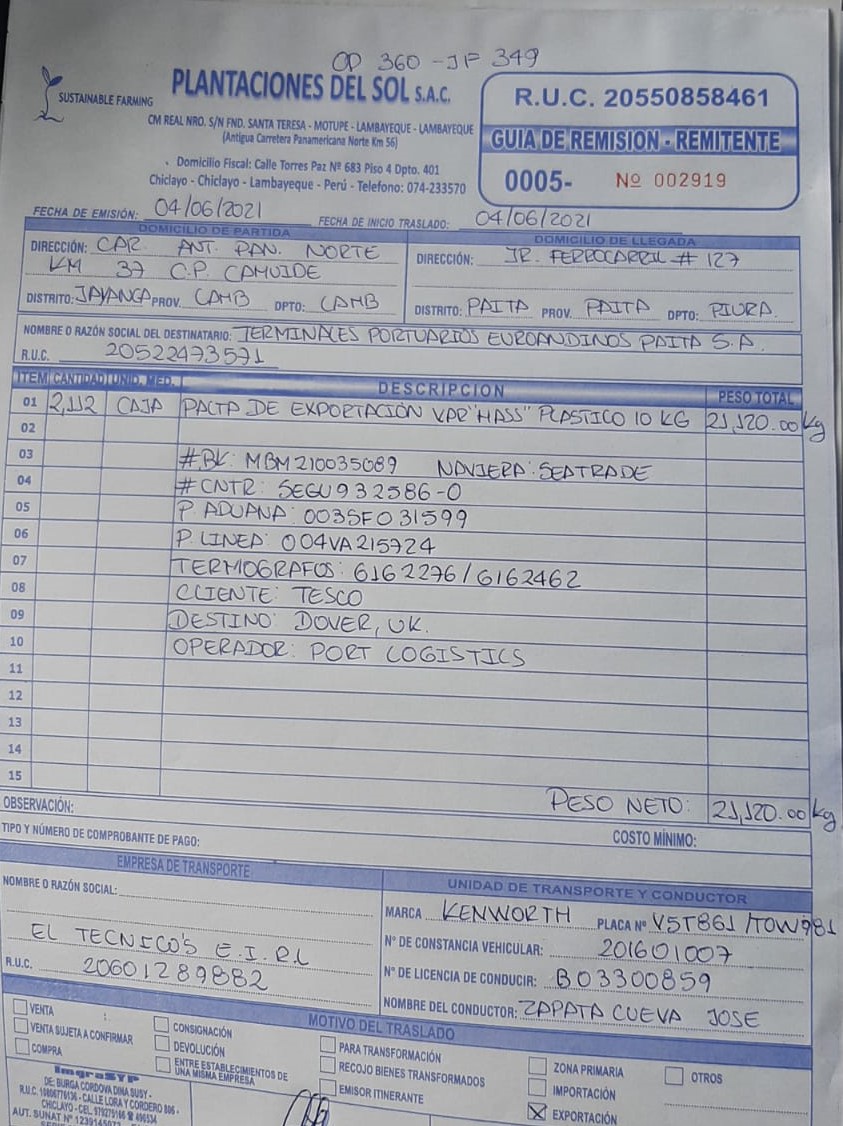 OP 360 - JF 349
SUSTAINABLE FARMING
PLANTACIONES DEL SOL S.A.C.
CM REAL NRO. S/N FND. SANTA TERESA - MOTUPE - LAMBAYEQUE - LAMBAYEQUE
(Antigua Carretera Panamericana Norte Km 56)
Domicilio Fiscal: Calle Torres Paz Nº 683 Piso 4 Dpto. 401
Chiclayo - Chiclayo - Lambayeque - Perú - Telefono: 074-233570
R.U.C. 20550858461
GUIA DE REMISION - REMITENTE
0005- Nº 002919
FECHA DE EMISIÓN: 04/06/2021 FECHA DE INICIO TRASLADO: 04/06/2021
DOMICILIO DE PARTIDA
DIRECCIÓN: CAR. ANT. PAN. NORTE
KM 37 C.P. CAMUIDE
DISTRITO: JAYANCA PROV. LAMB DPTO: LAMB
DOMICILIO DE LLEGADA
DIRECCIÓN: JR. FERROCARRIL # 127
DISTRITO: PAITA PROV. PAITA DPTO: PIURA.
NOMBRE O RAZÓN SOCIAL DEL DESTINATARIO: TERMINALES PORTUARIOS EUROANDINOS PAITA S.A.
R.U.C. 20522473571
ITEM CANTIDAD UNID. MED. DESCRIPCION PESO TOTAL
01 2,112 CAJA PALTA DE EXPORTACIÓN VAR "HASS" PLASTICO 10 KG 21,120.00 kg
02
03 #BK: MBM210035089 NAVIERA: SEATRADE
04 #CNTR: SEGU932586-0
05 P. ADUANA: 0035F031599
06 P. LINEA: 004VA215724
07 TERMOGRAFOS: 6162276/6162462
08 CLIENTE: TESCO
09 DESTINO: DOVER, UK.
10 OPERADOR: PORT LOGISTICS
11
12
13
14
15
PESO NETO: 21,120.00 kg
OBSERVACIÓN:
TIPO Y NÚMERO DE COMPROBANTE DE PAGO: COSTO MÍNIMO:
EMPRESA DE TRANSPORTE
NOMBRE O RAZÓN SOCIAL:
EL TECNICO'S E.I.R.L
R.U.C. 20601289882
UNIDAD DE TRANSPORTE Y CONDUCTOR
MARCA KENWORTH PLACA Nº V5T861/TOW981
Nº DE CONSTANCIA VEHICULAR: 201601007
Nº DE LICENCIA DE CONDUCIR: B03300859
NOMBRE DEL CONDUCTOR: ZAPATA CUEVA JOSE
MOTIVO DEL TRASLADO
VENTA
VENTA SUJETA A CONFIRMAR
COMPRA
CONSIGNACIÓN
DEVOLUCIÓN
ENTRE ESTABLECIMIENTOS DE
UNA MISMA EMPRESA
PARA TRANSFORMACIÓN
RECOJO BIENES TRANSFORMADOS
EMISOR ITINERANTE
ZONA PRIMARIA
IMPORTACIÓN
EXPORTACIÓN
OTROS
ImgraSYP
DE: BURGA CORDOVA DINA SUSY -
CALLE LORA Y CORDERO
CHICLAYO - CEL.
AUT. SUNAT Nº